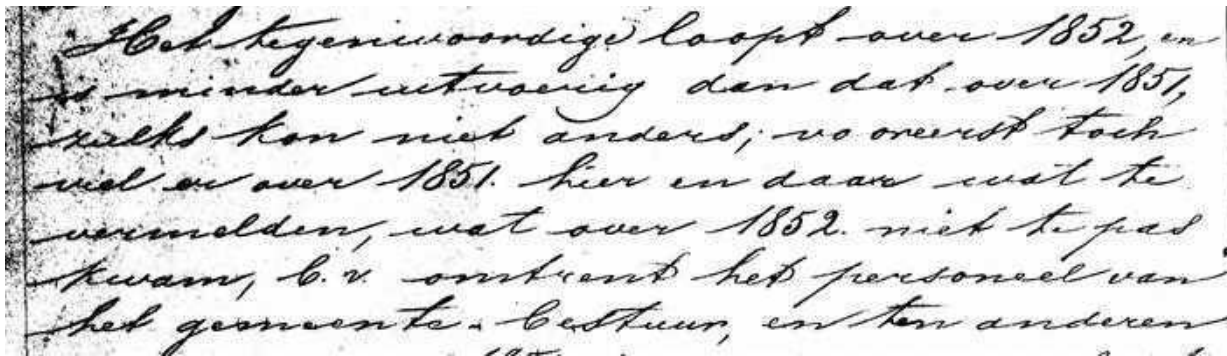 Het tegenwoordige loopt over 1852, en
is minder uitvoerig dan dat over 1851,
zulks kon niet anders; vooreerst toch
viel er over 1851. hier en daar wat te
vermelden, wat over 1852. niet te pas
kwam, b.v. omtrent het personeel van
het gemeente-bestuur, en ten anderen